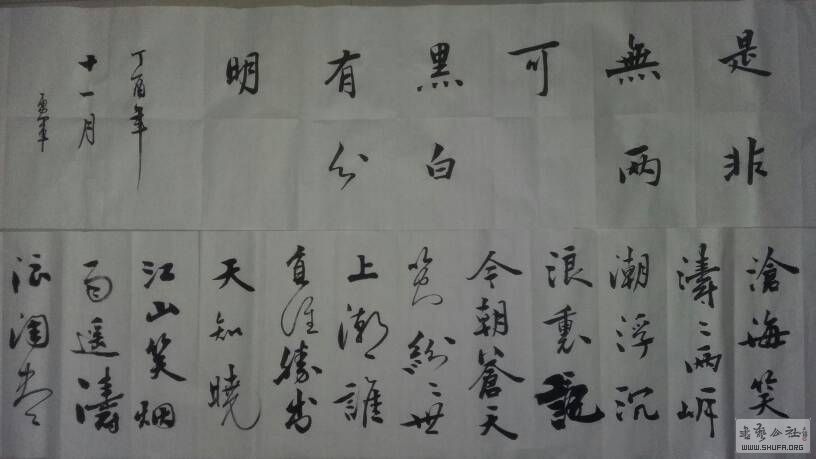 是非
無兩
可
黑白
有分
明
丁酉年
十一月
滄海笑
濤〻兩岸
潮浮沉
浪記
今朝蒼天
笑紛〻世
上潮誰
負誰勝出
天知曉
江山笑烟
雨遥濤
浪淘盡
書藝公社
WWW.SHUFA.ORG